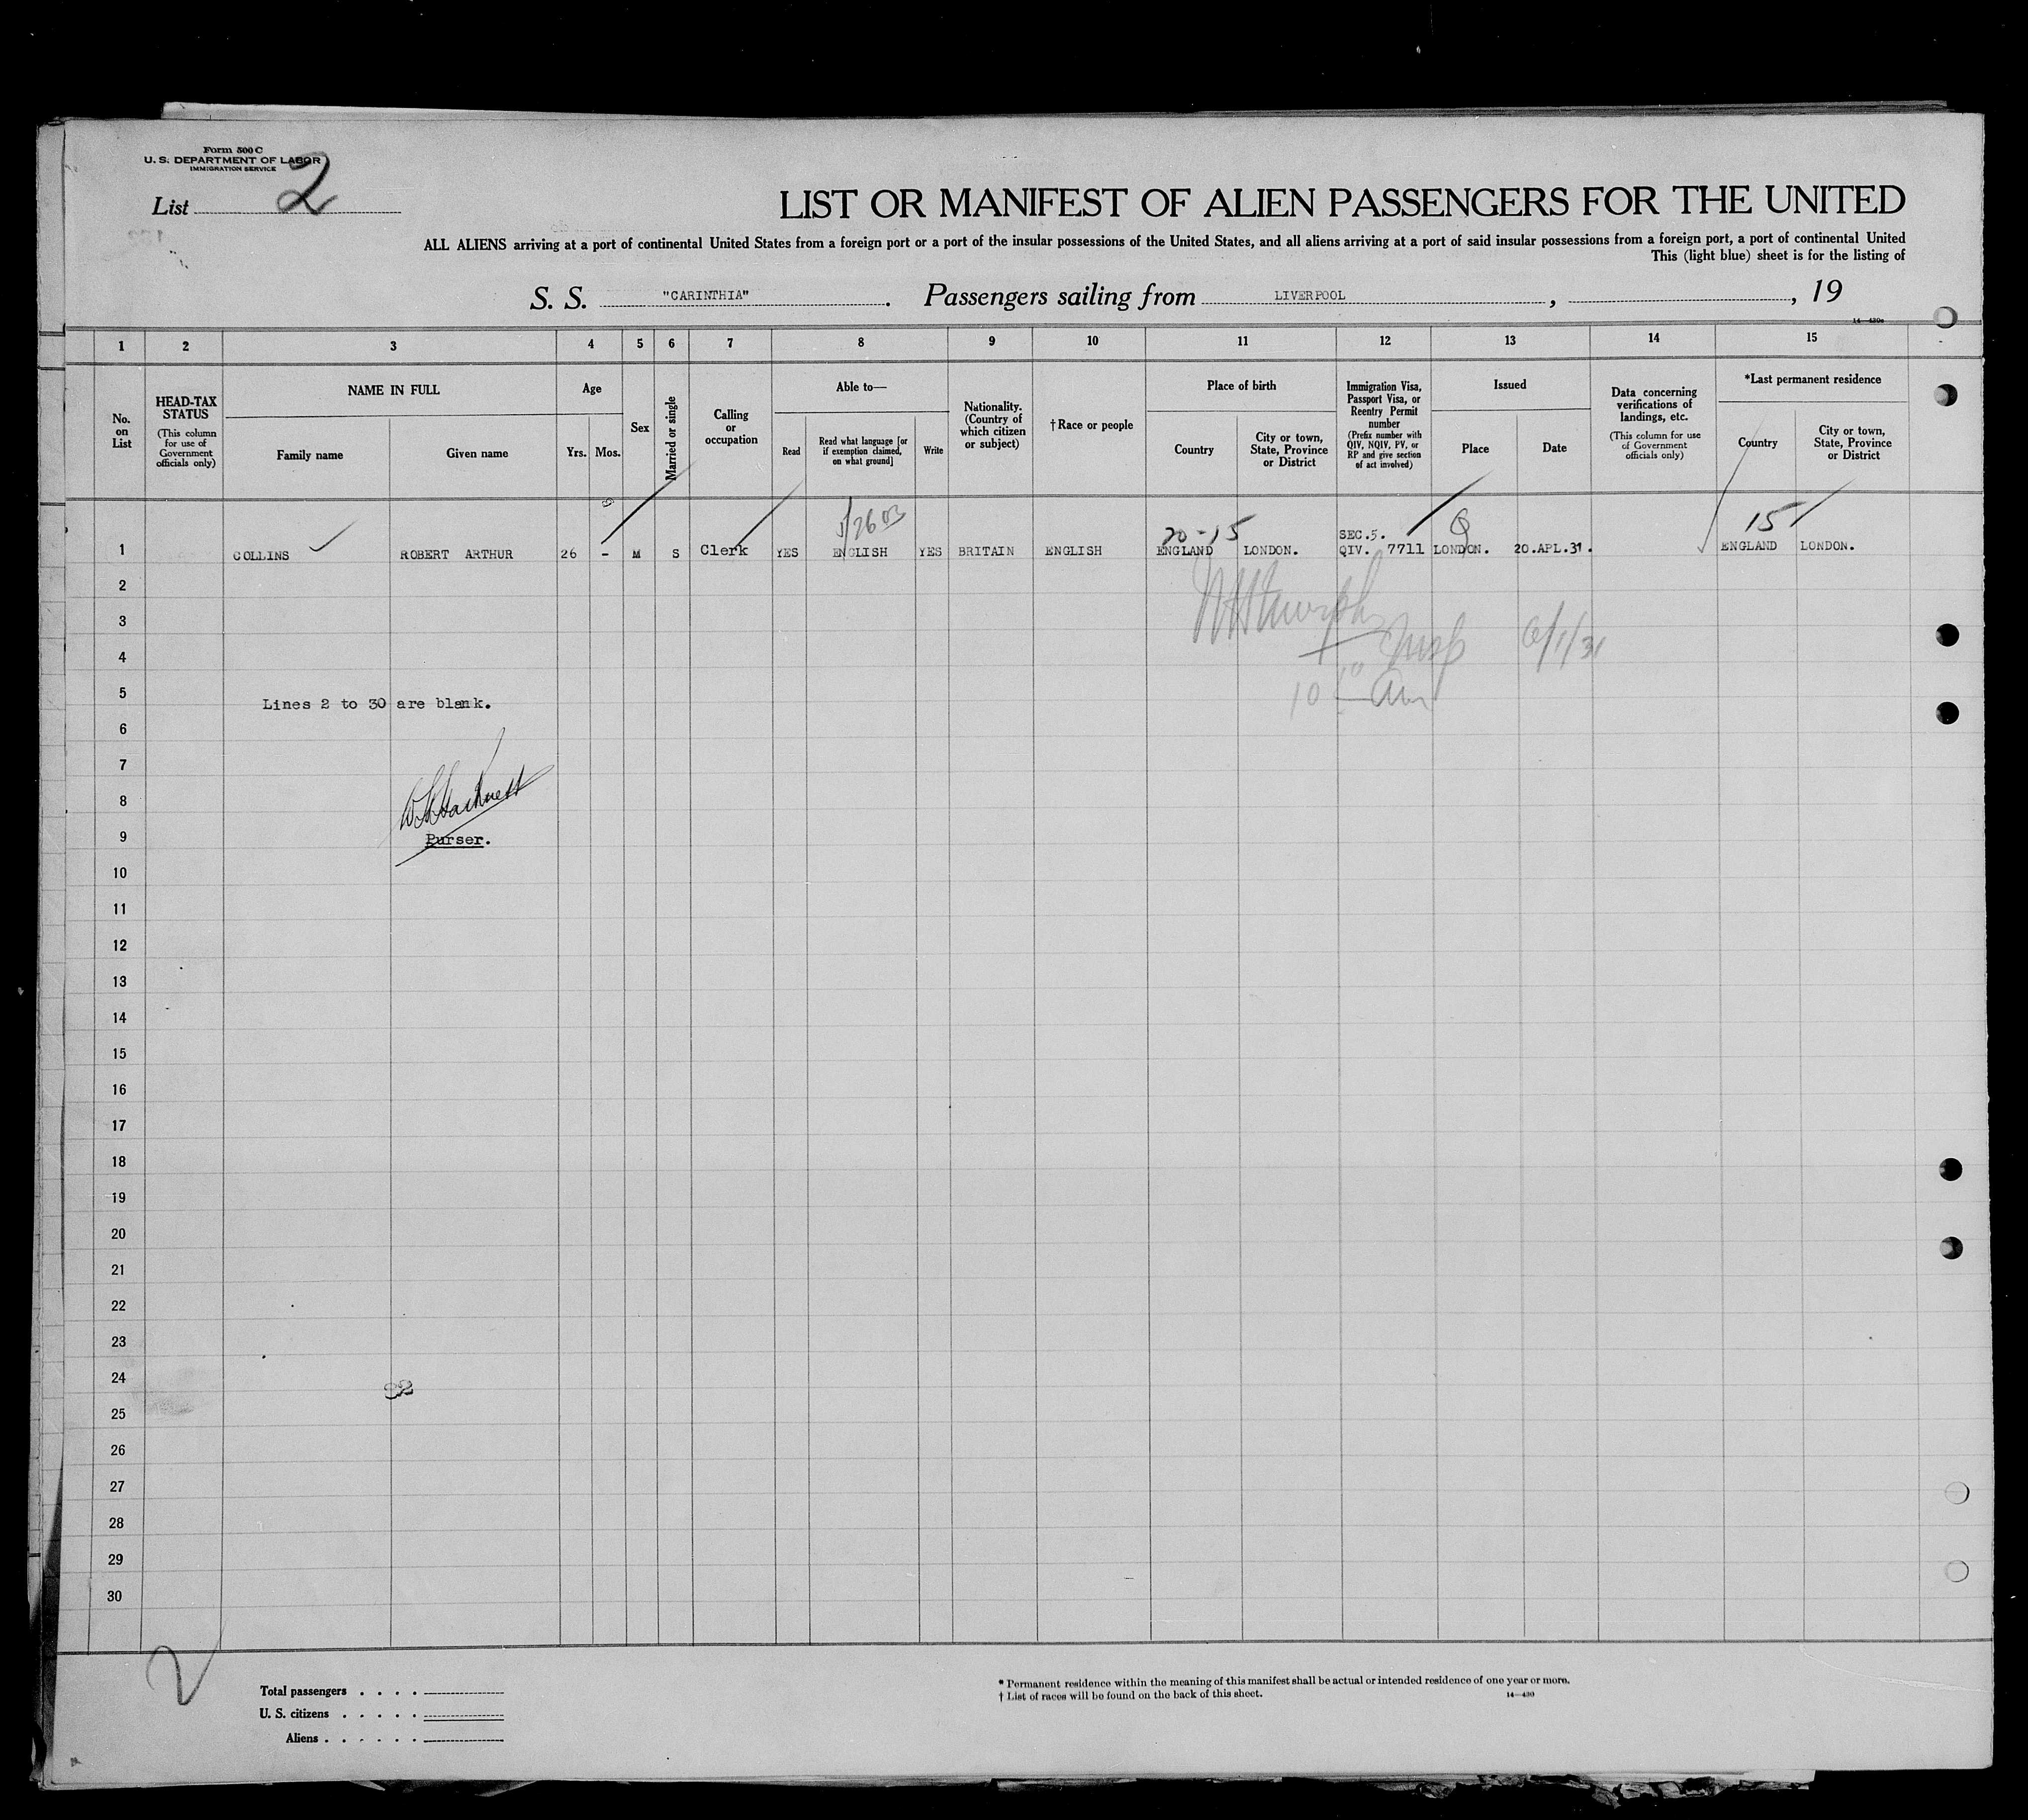 Form 500 C
U. S. DEPARTMENT OF LABOR
IMMIGRATION SERVICE
List 2
LIST OR MANIFEST OF ALIEN PASSENGERS FOR THE UNITED
ALL ALIENS arriving at a port of continental United States from a foreign port or a port of the insular possessions of the United States, and all aliens arriving at a port of said insular possessions from a foreign port, a port of continental United
This (light blue) sheet is for the listing of
S. S. "CARINTHIA". Passengers sailing from LIVERPOOL, , 19
1 2 3 4 5 6 7 8 9 10 11 12 13 14 15
No. on List
HEAD-TAX STATUS
(This column for use of Government officials only)
NAME IN FULL
Family name
Given name
Age
Yrs. Mos.
Sex
Married or single
Calling or occupation
Able to—
Read
Read what language [or if exemption claimed, on what ground]
Write
Nationality. (Country of which citizen or subject)
†Race or people
Place of birth
Country
City or town, State, Province or District
Immigration Visa, Passport Visa, or Reentry Permit number
(Prefix number with QIV, NQIV, PV, or RP and give section of act involved)
Issued
Place
Date
Data concerning verifications of landings, etc.
(This column for use of Government officials only)
*Last permanent residence
Country
City or town, State, Province or District
20-15 Q 15
SEC.5.
1 COLLINS ROBERT ARTHUR 26 - M S Clerk YES ENGLISH YES BRITAIN ENGLISH ENGLAND LONDON. QIV. 7711 LONDON. 20.APL.31. ENGLAND LONDON.
2
3
6/1/31
4
5
10 Am
Lines 2 to 30 are blank.
6
7
8
9
Purser.
10
11
12
13
14
15
16
17
18
19
20
21
22
23
24
25
26
27
28
29
30
2
Total passengers
U. S. citizens
Aliens
* Permanent residence within the meaning of this manifest shall be actual or intended residence of one year or more.
† List of races will be found on the back of this sheet.
14—430